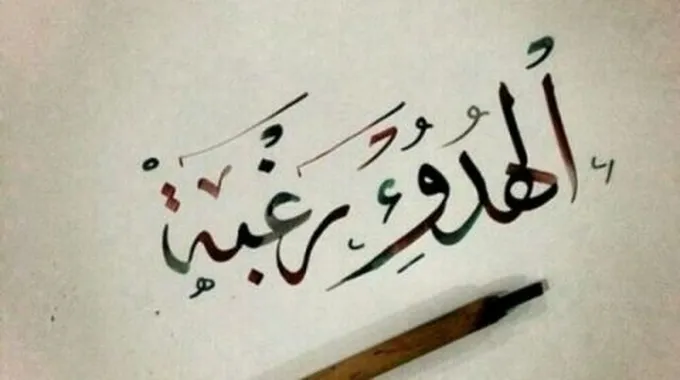 الهدوء رغبة